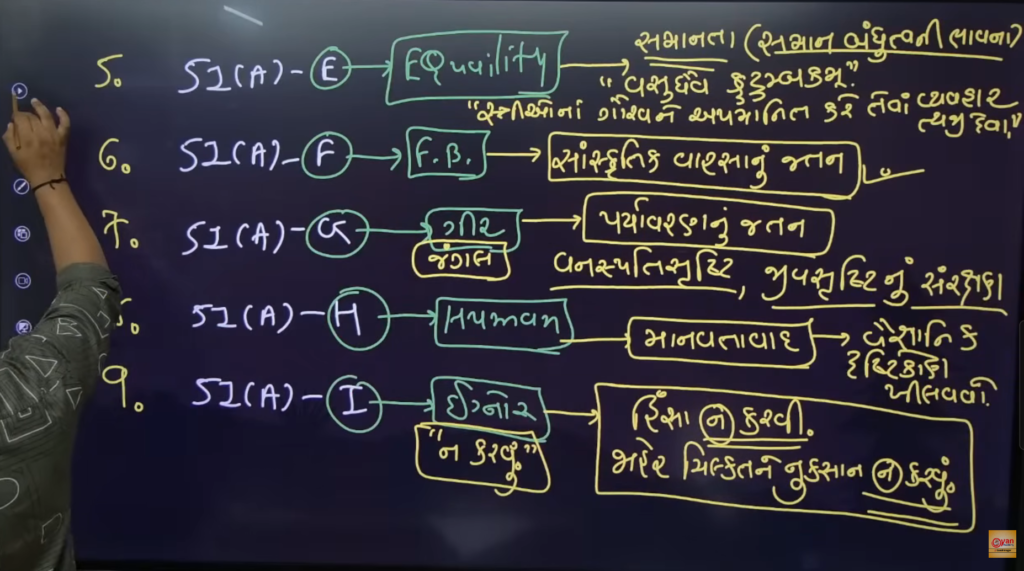 5. 51(A) - E → EQuality → સમાનતા (સમાન બંધુત્વની ભાવના)
"વસુધૈવ કુટુમ્બકમ્."
"સ્ત્રીઓનાં ગૌરવને અપમાનિત કરે તેવાં વ્યવહાર ત્યજી દેવા."
6. 51(A) - F → F.B. → સાંસ્કૃતિક વારસાનું જતન
7. 51(A) - G → ગીર → પર્યાવરણનું જતન
જંગલ
વનસ્પતિસૃષ્ટિ, જીવસૃષ્ટિનું સંરક્ષણ
51(A) - H → Human → માનવતાવાદ → વૈજ્ઞાનિક
દ્રષ્ટિકોણ
ખીલવવો.
9. 51(A) - I → ઈગ્નોર → હિંસા ન કરવી.
"ન કરવું."
જાહેર મિલ્કતને નુકસાન ન કરવું.